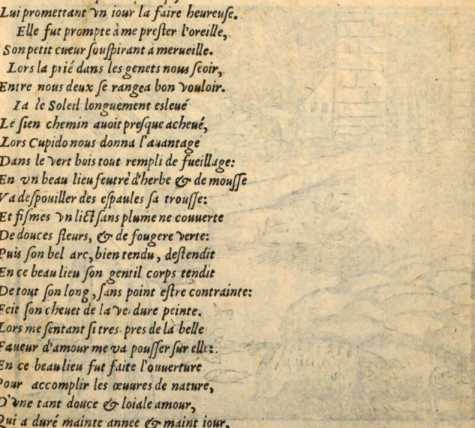 Lui promettant vn iour la faire heureuſe.
Elle fut prompte à me preſter l'oreille,
Son petit cueur ſouſpirant a merueille.
Lors la prié dans les genets nous ſeoir,
Entre nous deux ſe rangea bon vouloir.
Ia le Soleil longuement esleué
Le ſien chemin auoit preſque acheué,
Lors Cupido nous donna l'auantage
Dans le vert bois tout rempli de fueillage:
En vn beau lieu feutré d'herbe & de mouſſe
Va deſpouiller des eſpaules ſa trouſſe:
Et fiſmes vn lict ſans plume ne couuerte
De douces fleurs, & de fougere verte:
Puis ſon bel arc, bien tendu, deſtendit
En ce beau lieu ſon gentil corps tendit
De tout ſon long, ſans point eſtre contrainte:
Feit ſon cheuet de la verdure peinte.
Lors me ſentant ſi tres-pres de la belle
Faueur d'amour me va pouſſer ſur elle:
En ce beau lieu fut faite l'ouuerture
Pour accomplir les œuures de nature,
D'vne tant douce & loiale amour,
Qui a duré mainte annee & maint iour,